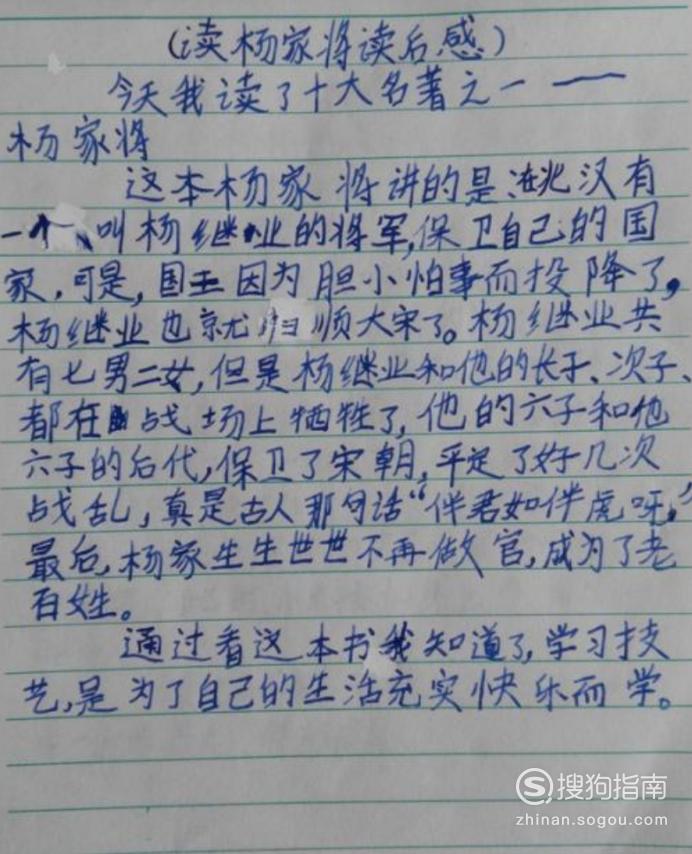 (读杨家将读后感)
今天我读了十大名著之一——
杨家将
这本杨家将讲的是:汉有
一个叫杨继业的将军,保卫自己的国
家,可是,国王因为胆小怕事而投降了,
杨继业也就归顺大宋了。杨继业共
有七男二女,但是杨继业和他的长子、次子、
都在战场上牺牲了,他的六子和他
六子的后代,保卫了宋朝,平定了好几次
战乱,真是古人那句话“伴君如伴虎呀,”
最后,杨家生生世世不再做官,成为了老
百姓。
通过看这本书我知道了,学习技
艺,是为了自己的生活充实快乐而学。
搜狗指南
zhinan.sogou.com